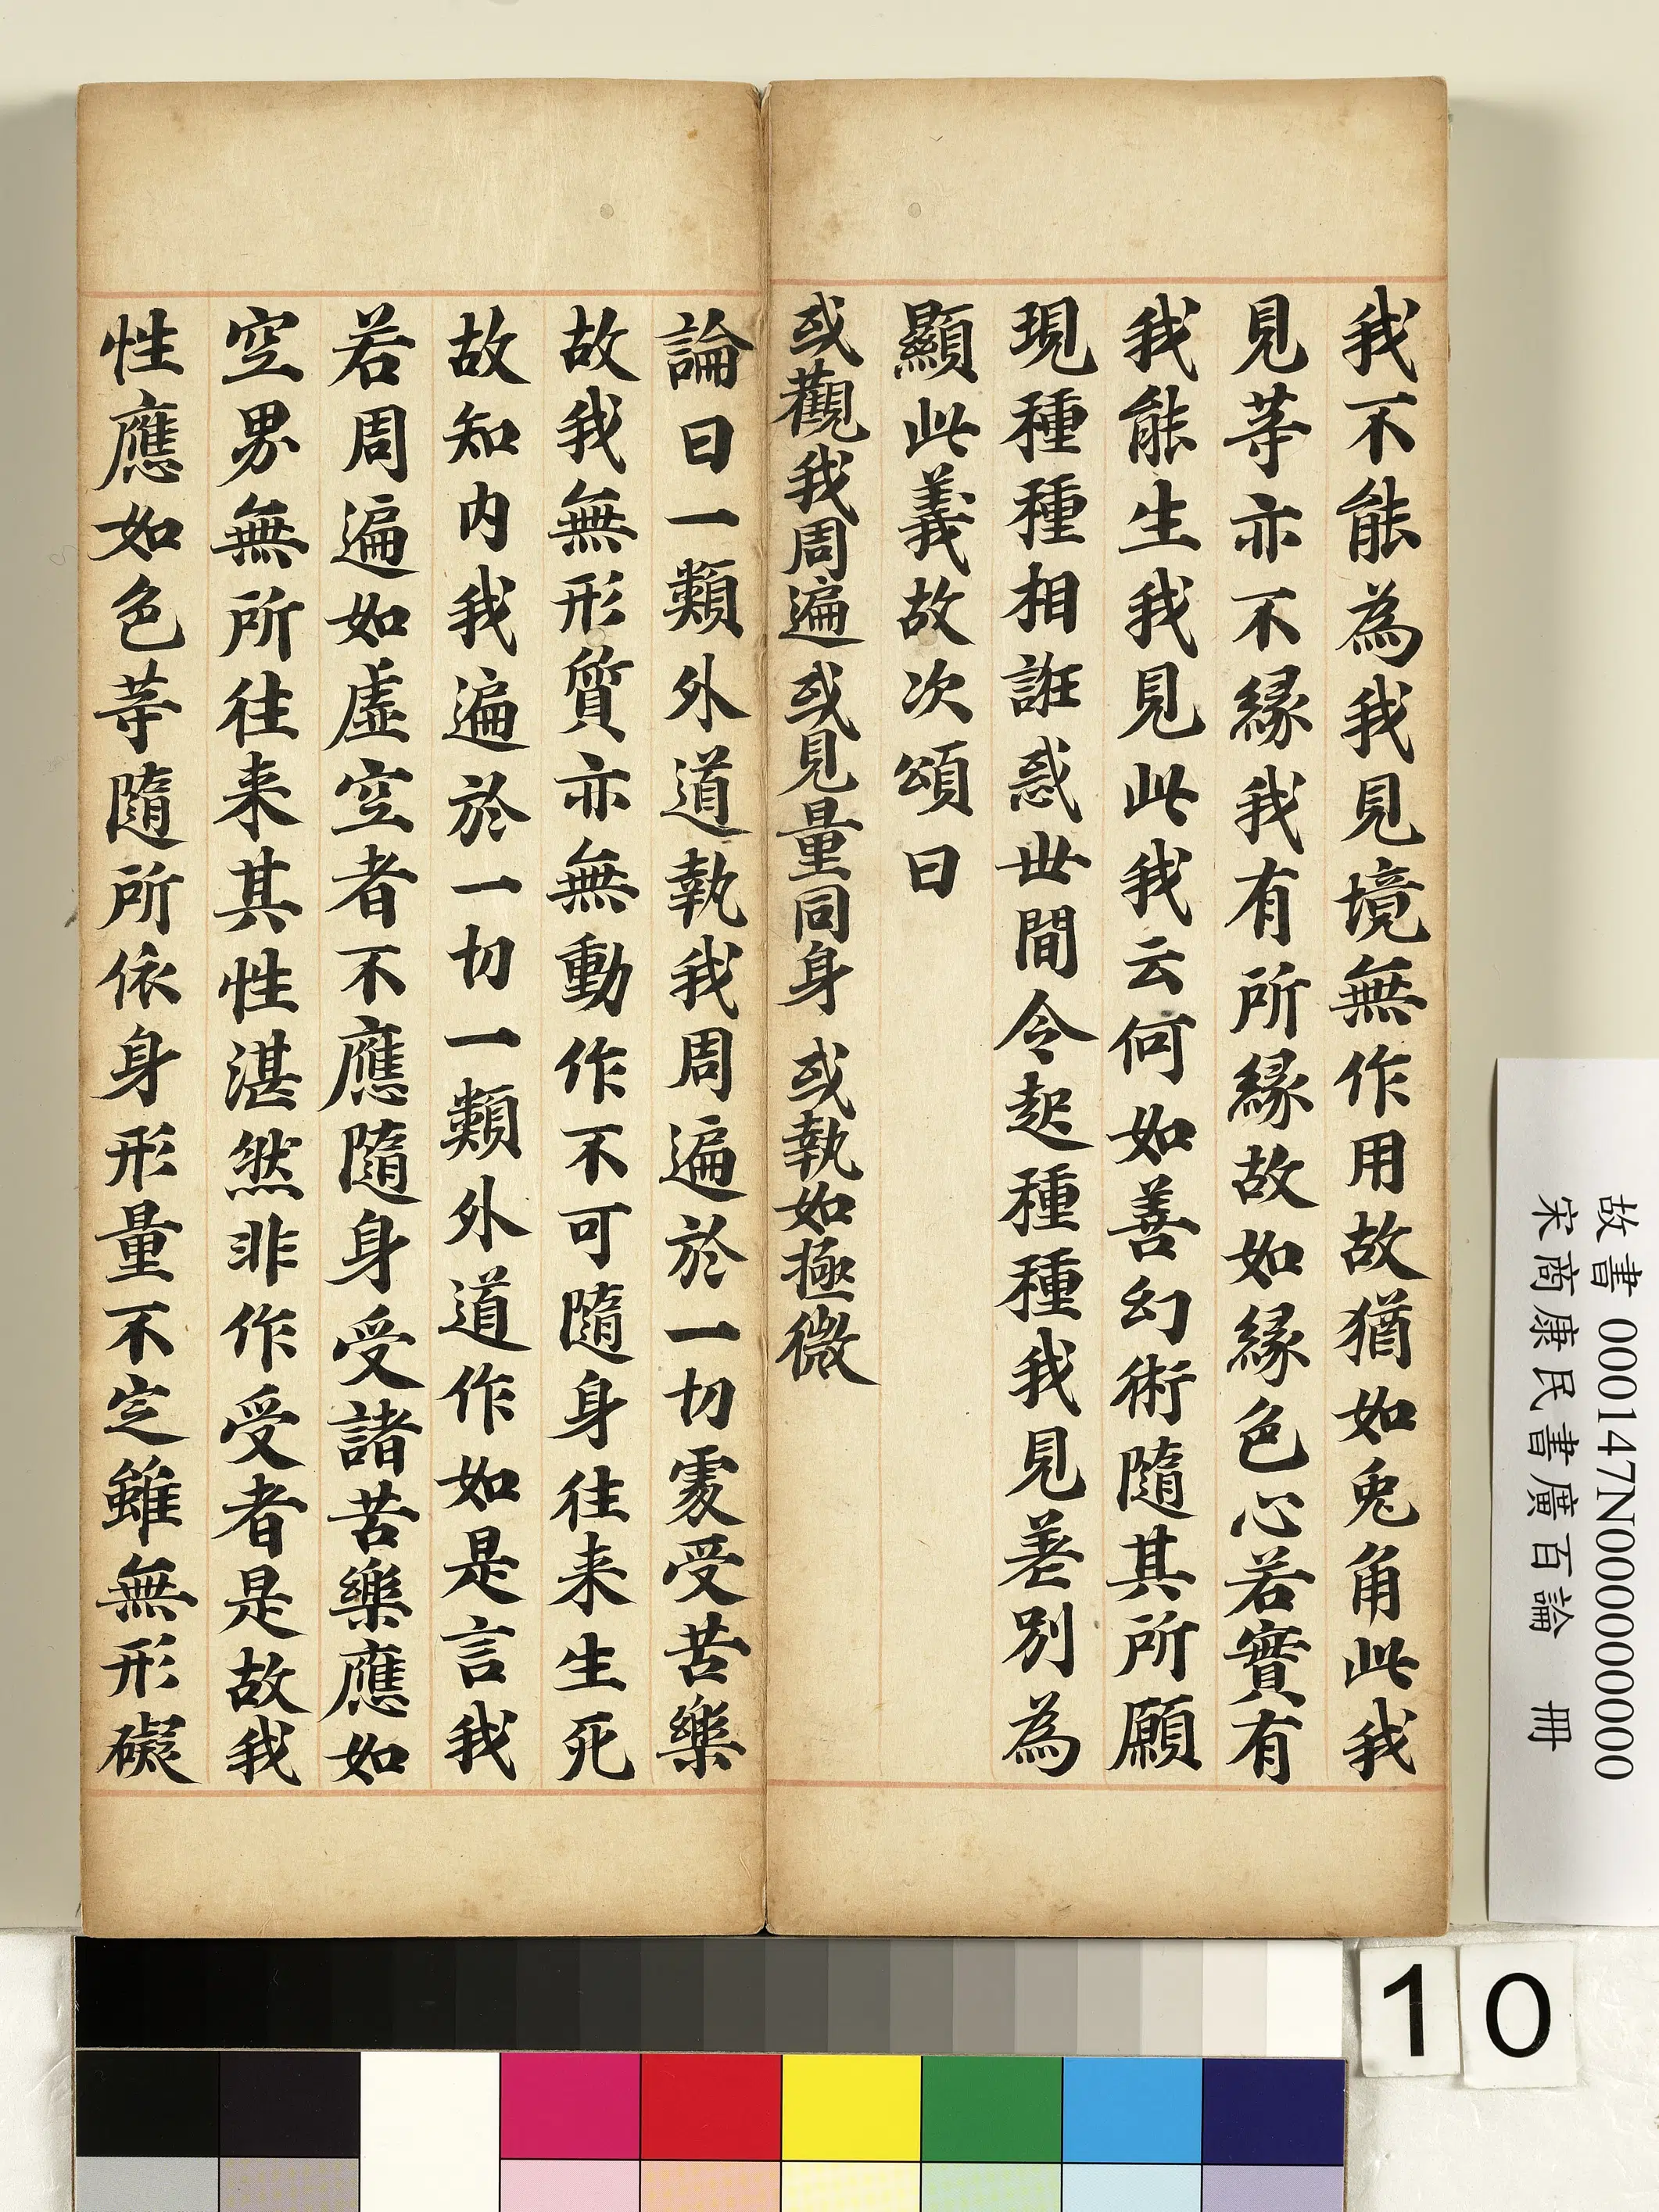 我不能為我見境無作用故猶如兎角此我
見等亦不緣我我有所緣故如緣色心若實有
我能生我見此我云何如善幻術隨其所願
現種種相誑惑世間令起種種我見差別為
顯此義故次頌曰
或觀我周遍 或見量同身 或執如極微
論曰一類外道執我周遍於一切處受苦樂
故我無形質亦無動作不可隨身往来生死
故知内我遍於一切一類外道作如是言我
若周遍如虛空者不應隨身受諸苦樂應如
空界無所往来其性湛然非作受者是故我
性應如色等隨所依身形量不定雖無形礙
故書 000147N000000000
宋商康民書廣百論 冊
10